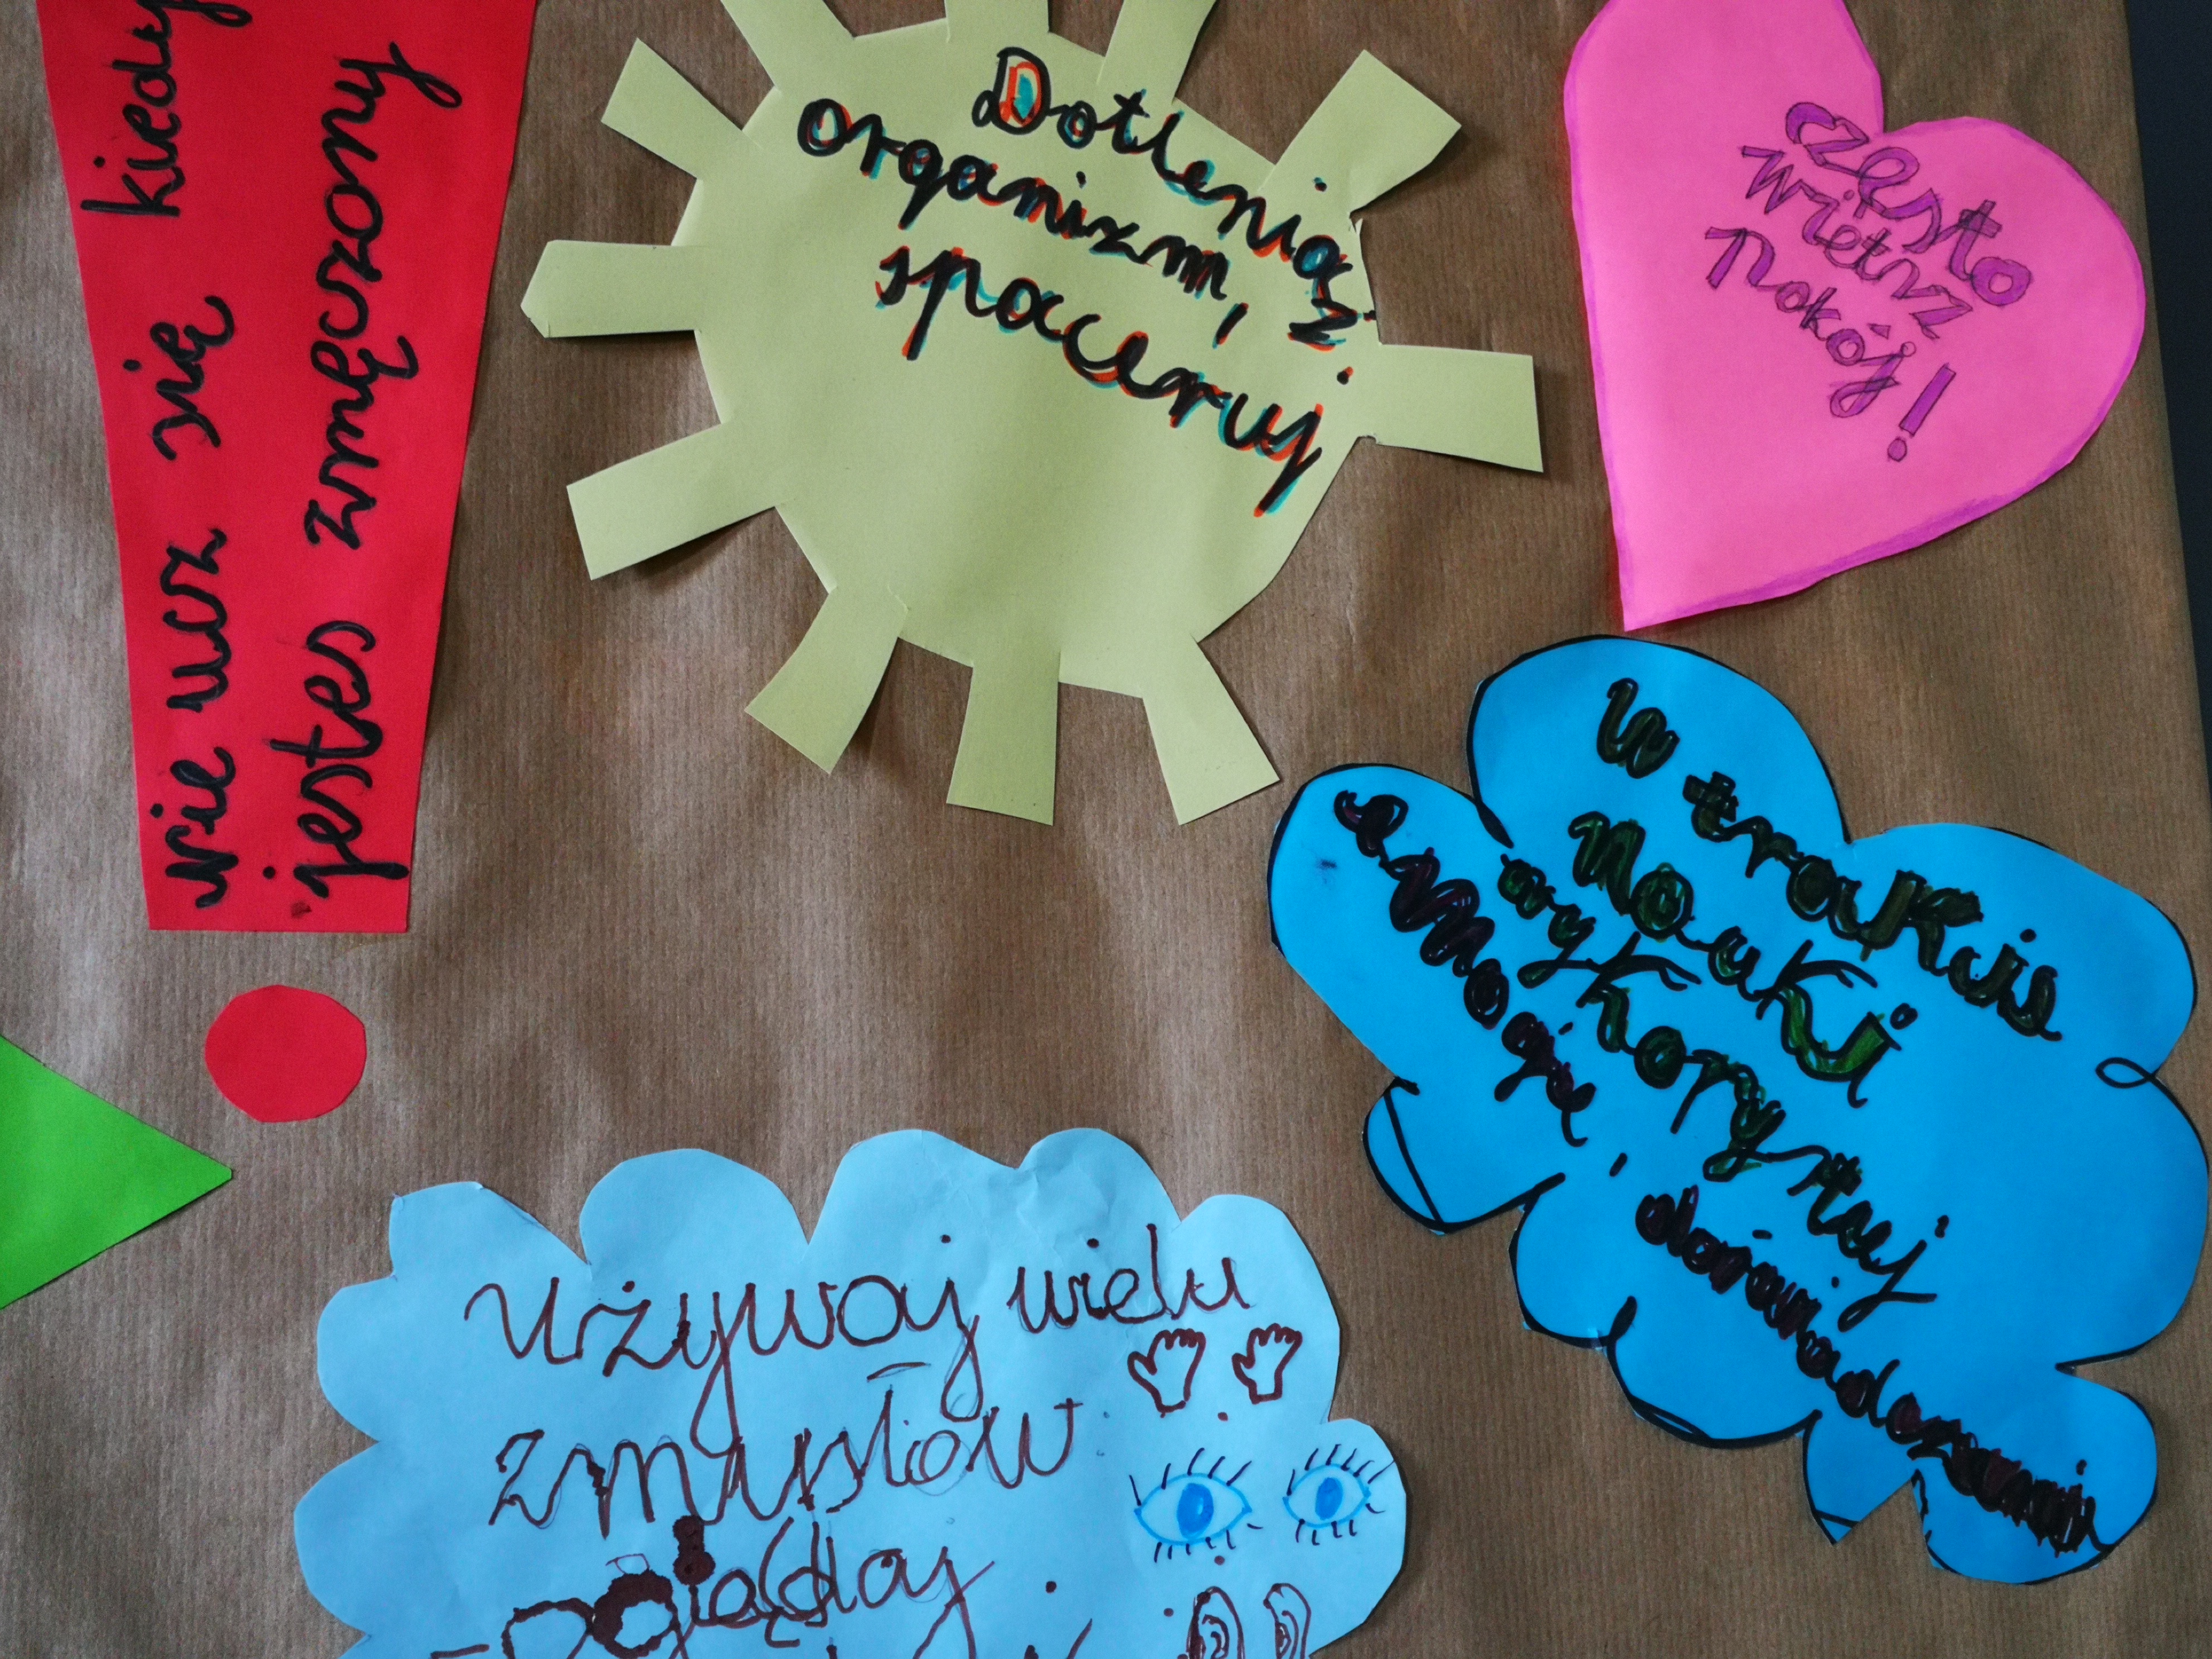 nie ucz się kiedy
jestes zmęczony
Dotleniaż
organizm, ż
spaceruj
często
wietrz
pokój!
W trakcie
Nauki
wykorzystuj
e Mogię,
doświadczenia
używaj wielu
zmysłów